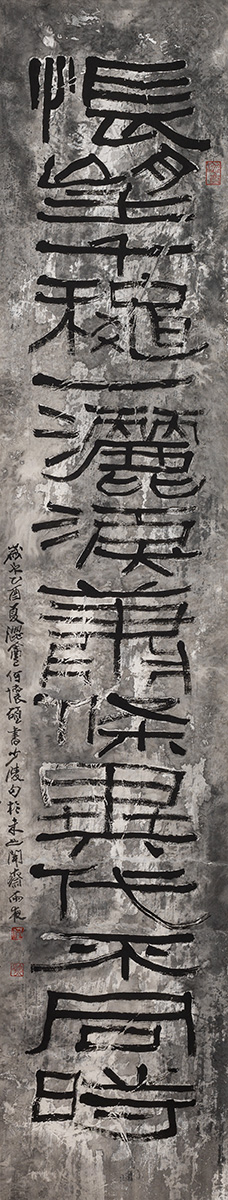 悵望千穐一灑淚蕭條異代不同時
歲次乙酉夏澀盦何懷碩書少陵句於未之聞齋雨夜